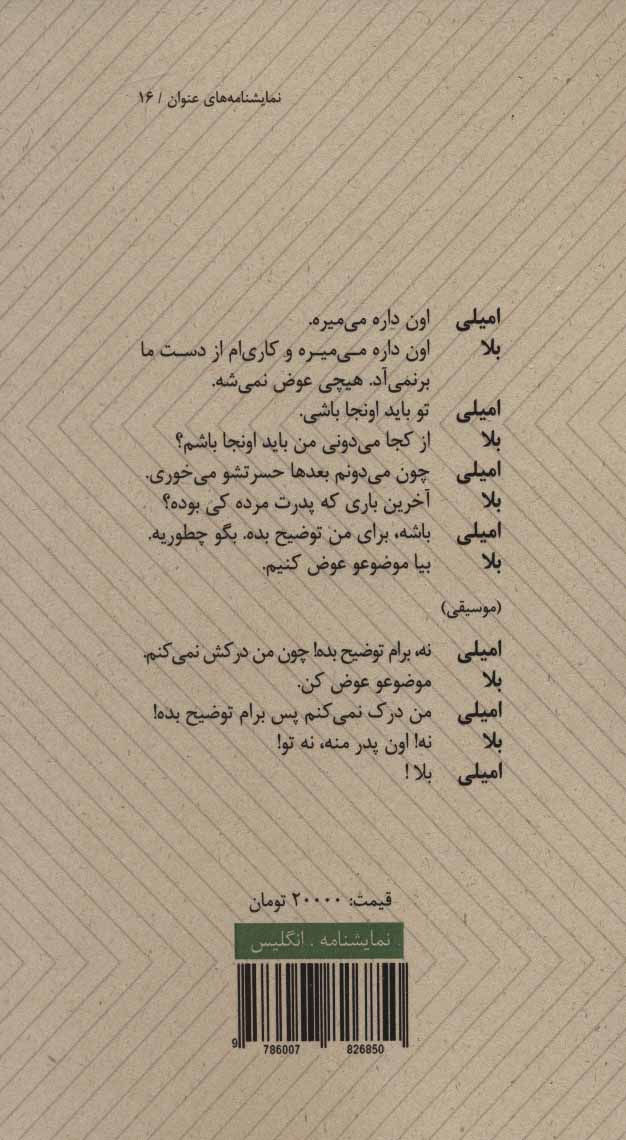 نمایشنامه‌های عنوان / ۱۶
امیلی اون داره می‌میره.
بلا اون داره مـی‌میـره و کاری‌ام از دسـت ما
برنمی‌آد. هیچی عوض نمی‌شه.
امیلی تو باید اونجا باشی.
بلا از کجا می‌دونی من باید اونجا باشم؟
امیلی چون می‌دونم بعدها حسرتشو می‌خوری.
بلا آخرین باری که پدرت مرده کی بوده؟
امیلی باشه، برای من توضیح بده. بگو چطوریه.
بلا بیا موضوعو عوض کنیم.
(موسیقی)
امیلی نه، برام توضیح بده! چون من درکش نمی‌کنم.
بلا موضوعو عوض کن.
امیلی من درک نمی‌کنم پس برام توضیح بده!
بلا نه! اون پدر منه، نه تو!
امیلی بلا !
قیمت: ۲۰۰۰۰ تومان
نمایشنامه . انگلیس
9 786007 826850